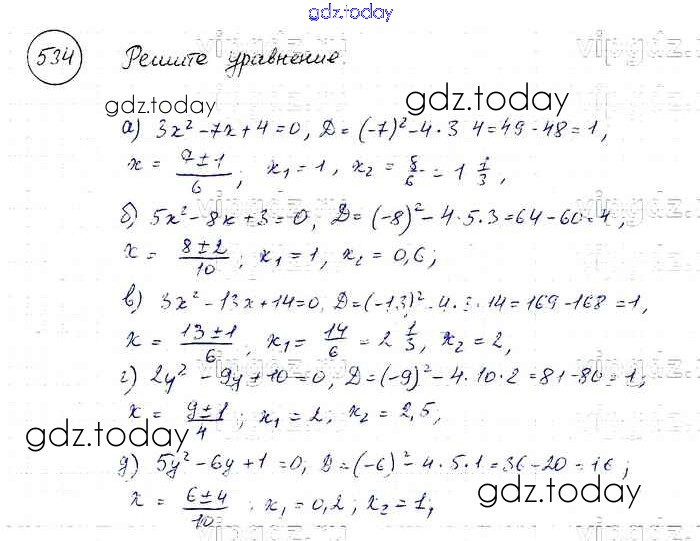 gdz.today
534 Решите уравнение.
gdz.today gdz.today
а) 3x² - 7x + 4 = 0, D = (-7)² - 4 · 3 4 = 49 - 48 = 1,
x = (7 ± 1)/6; x₁ = 1, x₂ = 8/6 = 1 1/3,
б) 5x² - 8x + 3 = 0, D = (-8)² - 4 · 5 · 3 = 64 - 60 = 4,
x = (8 ± 2)/10; x₁ = 1, x₂ = 0,6;
в) 3x² - 13x + 14 = 0, D = (-13)² - 4 · 3 · 14 = 169 - 168 = 1,
x = (13 ± 1)/6; x₁ = 14/6 = 2 1/3, x₂ = 2,
г) 2y² - 9y + 10 = 0, D = (-9)² - 4 · 10 · 2 = 81 - 80 = 1;
x = (9 ± 1)/4; x₁ = 2, x₂ = 2,5,
gdz.today
д) 5y² - 6y + 1 = 0, D = (-6)² - 4 · 5 · 1 = 36 - 20 = 16;
x = (6 ± 4)/10; x₁ = 0,2; x₂ = 1;
gdz.today